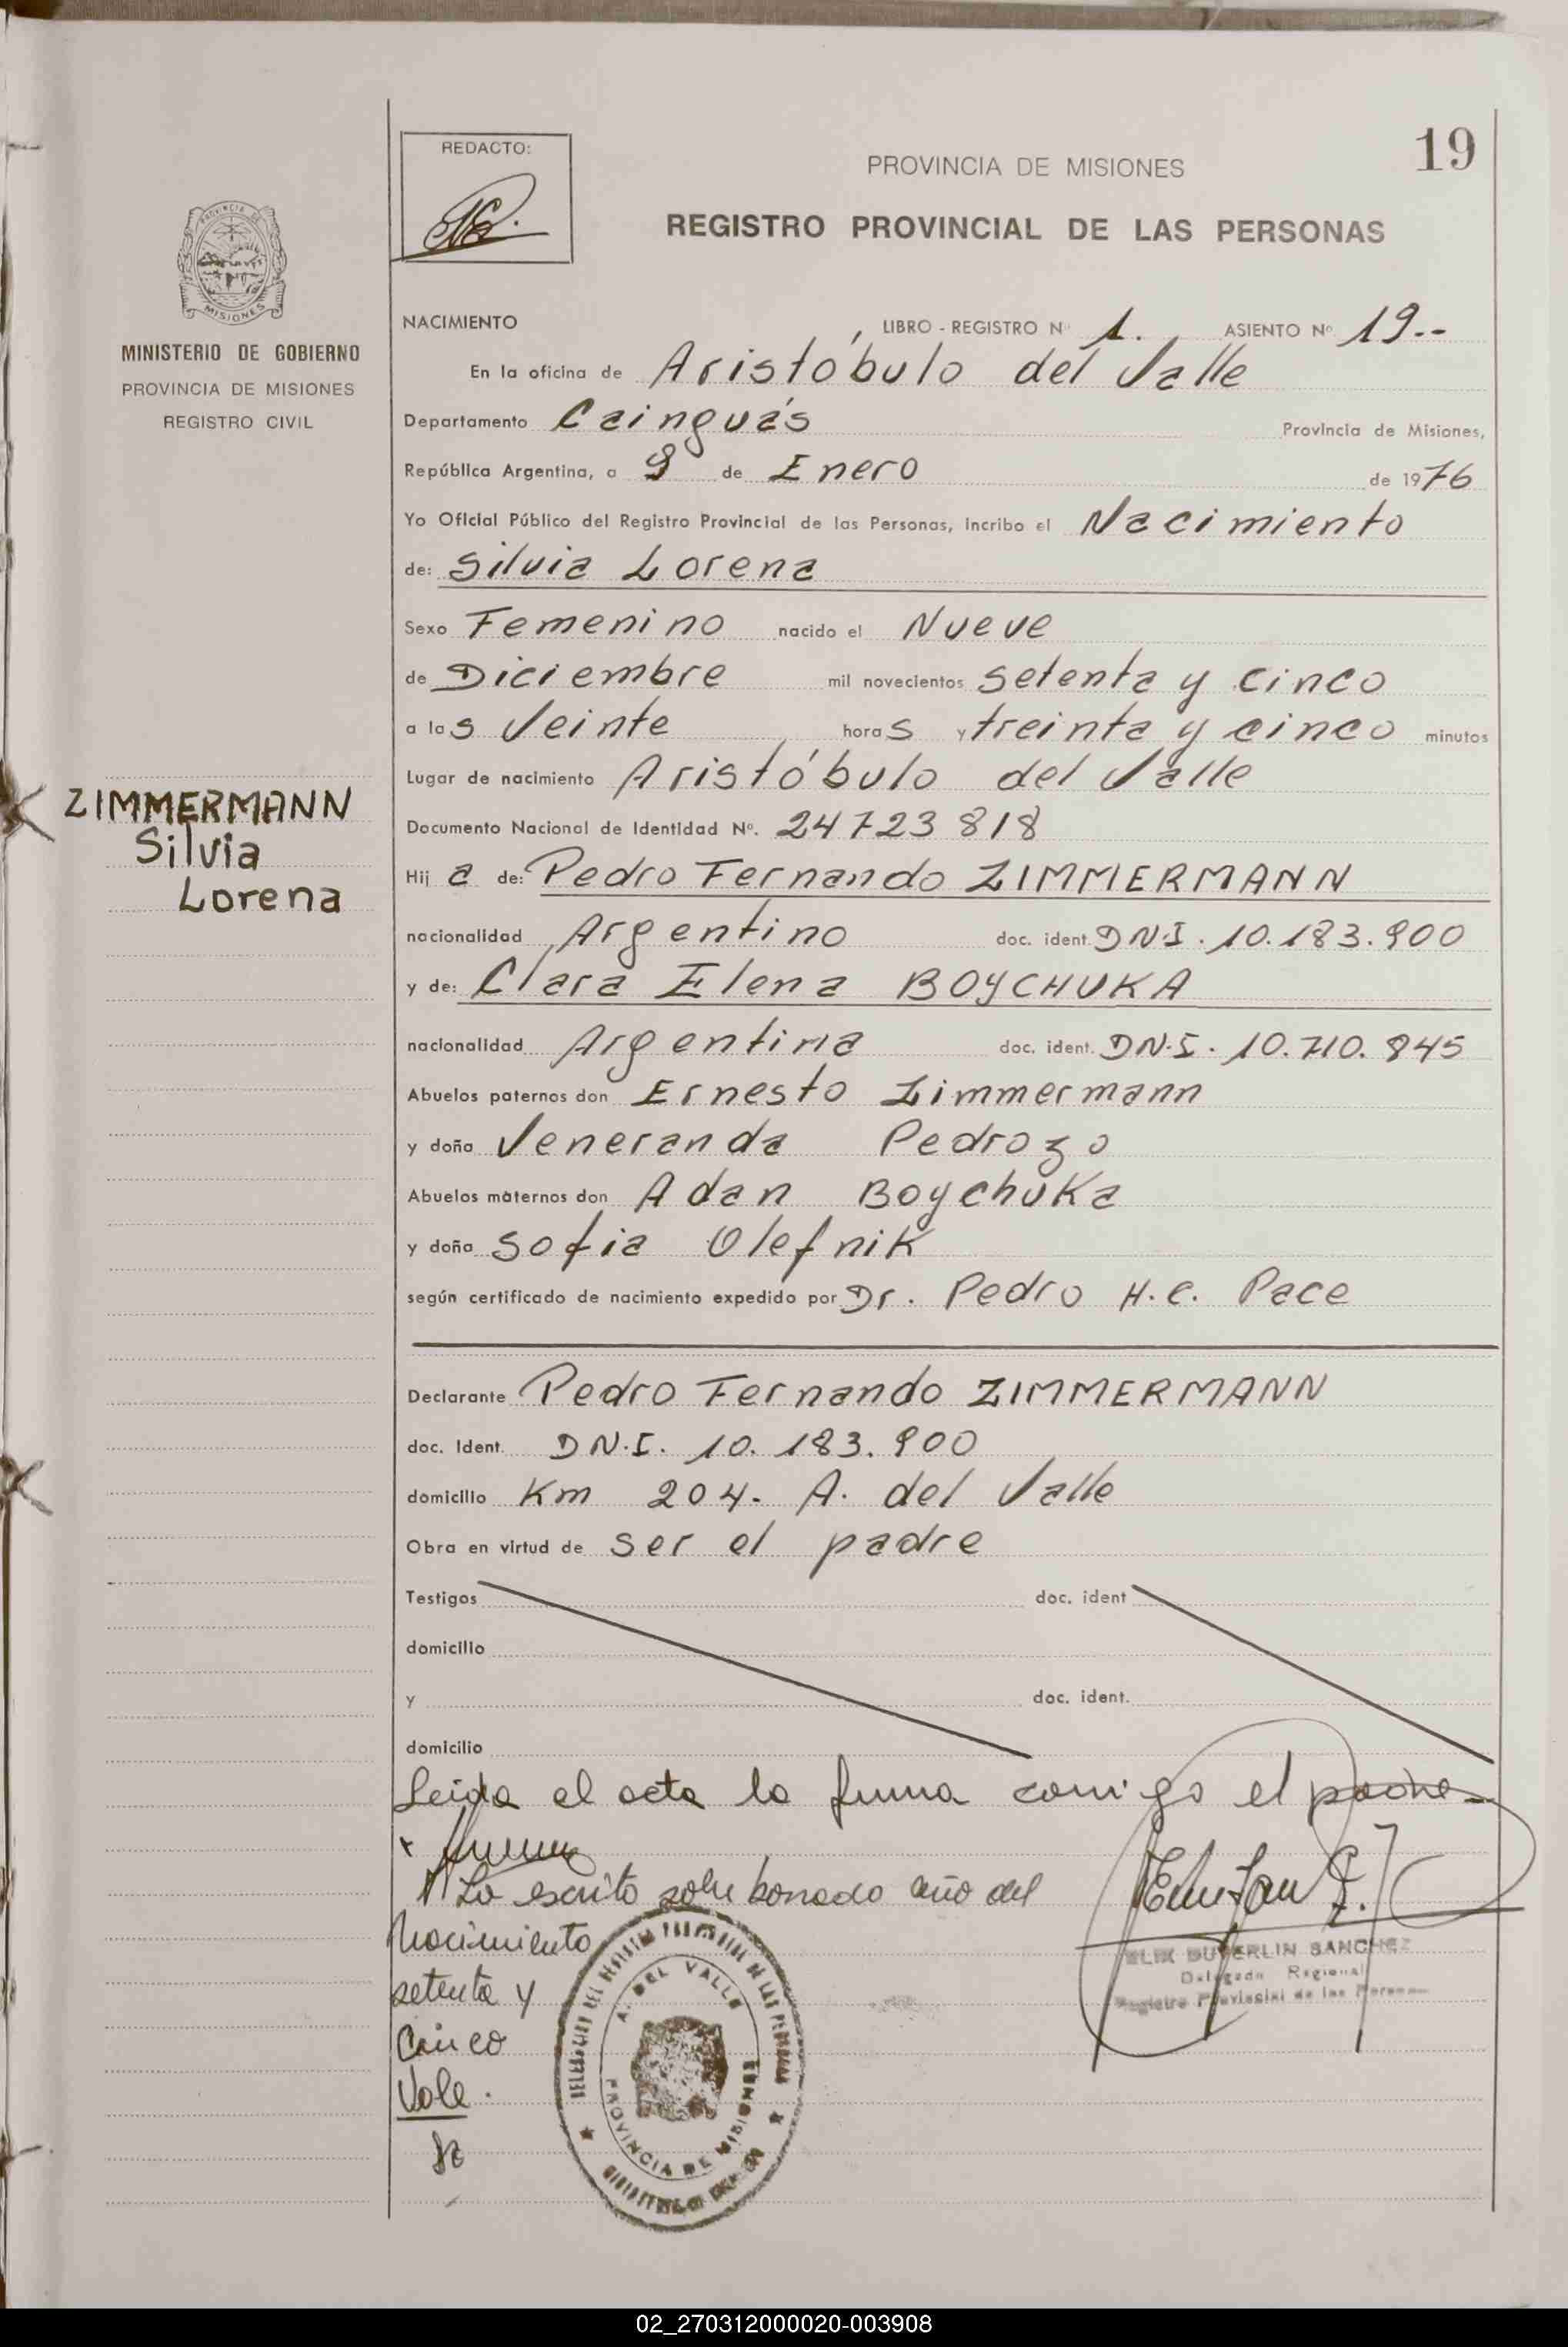 19
REDACTO:
PROVINCIA DE MISIONES
REGISTRO PROVINCIAL DE LAS PERSONAS
PROVINCIA DE
MISIONES
MINISTERIO DE GOBIERNO
PROVINCIA DE MISIONES
REGISTRO CIVIL
ZIMMERMANN
Silvia
Lorena
NACIMIENTO LIBRO - REGISTRO Nº 1. ASIENTO Nº 19--
En la oficina de Aristóbulo del Valle
Departamento Cainguás Provincia de Misiones,
República Argentina, a 9 de Enero de 1976
Yo Oficial Público del Registro Provincial de las Personas, incribo el Nacimiento
de: Silvia Lorena
Sexo Femenino nacido el Nueve
de Diciembre mil novecientos setenta y cinco
a las Veinte horas y treinta y cinco minutos
Lugar de nacimiento Aristóbulo del Valle
Documento Nacional de Identidad Nº. 24723818
Hij a de: Pedro Fernando ZIMMERMANN
nacionalidad Argentino doc. ident. DN.I. 10.183.900
y de: Clara Elena BOYCHUKA
nacionalidad Argentina doc. ident. DN.I. 10.710.845
Abuelos paternos don Ernesto Zimmermann
y doña Veneranda Pedrozo
Abuelos maternos don Adan Boychuka
y doña Sofia Olefnik
según certificado de nacimiento expedido por Dr. Pedro H.C. Pace
Declarante Pedro Fernando ZIMMERMANN
doc. Ident. DN.I. 10.183.900
domicilio Km 204. A. del Valle
Obra en virtud de ser el padre
Testigos doc. ident
domicilio
y doc. ident.
domicilio
Leida el acta la firma conmigo el padre-
Lo escrito sobre borrado año del
Nacimiento
setenta y
Cinco
Vale.
A. DEL VALLE
PROVINCIA DE MISIONES
DELEGACION DEL REGISTRO PROVINCIAL DE LAS PERSONAS
SANCHEZ
Delegado Regional
Registro Provincial de las Personas
02_270312000020-003908